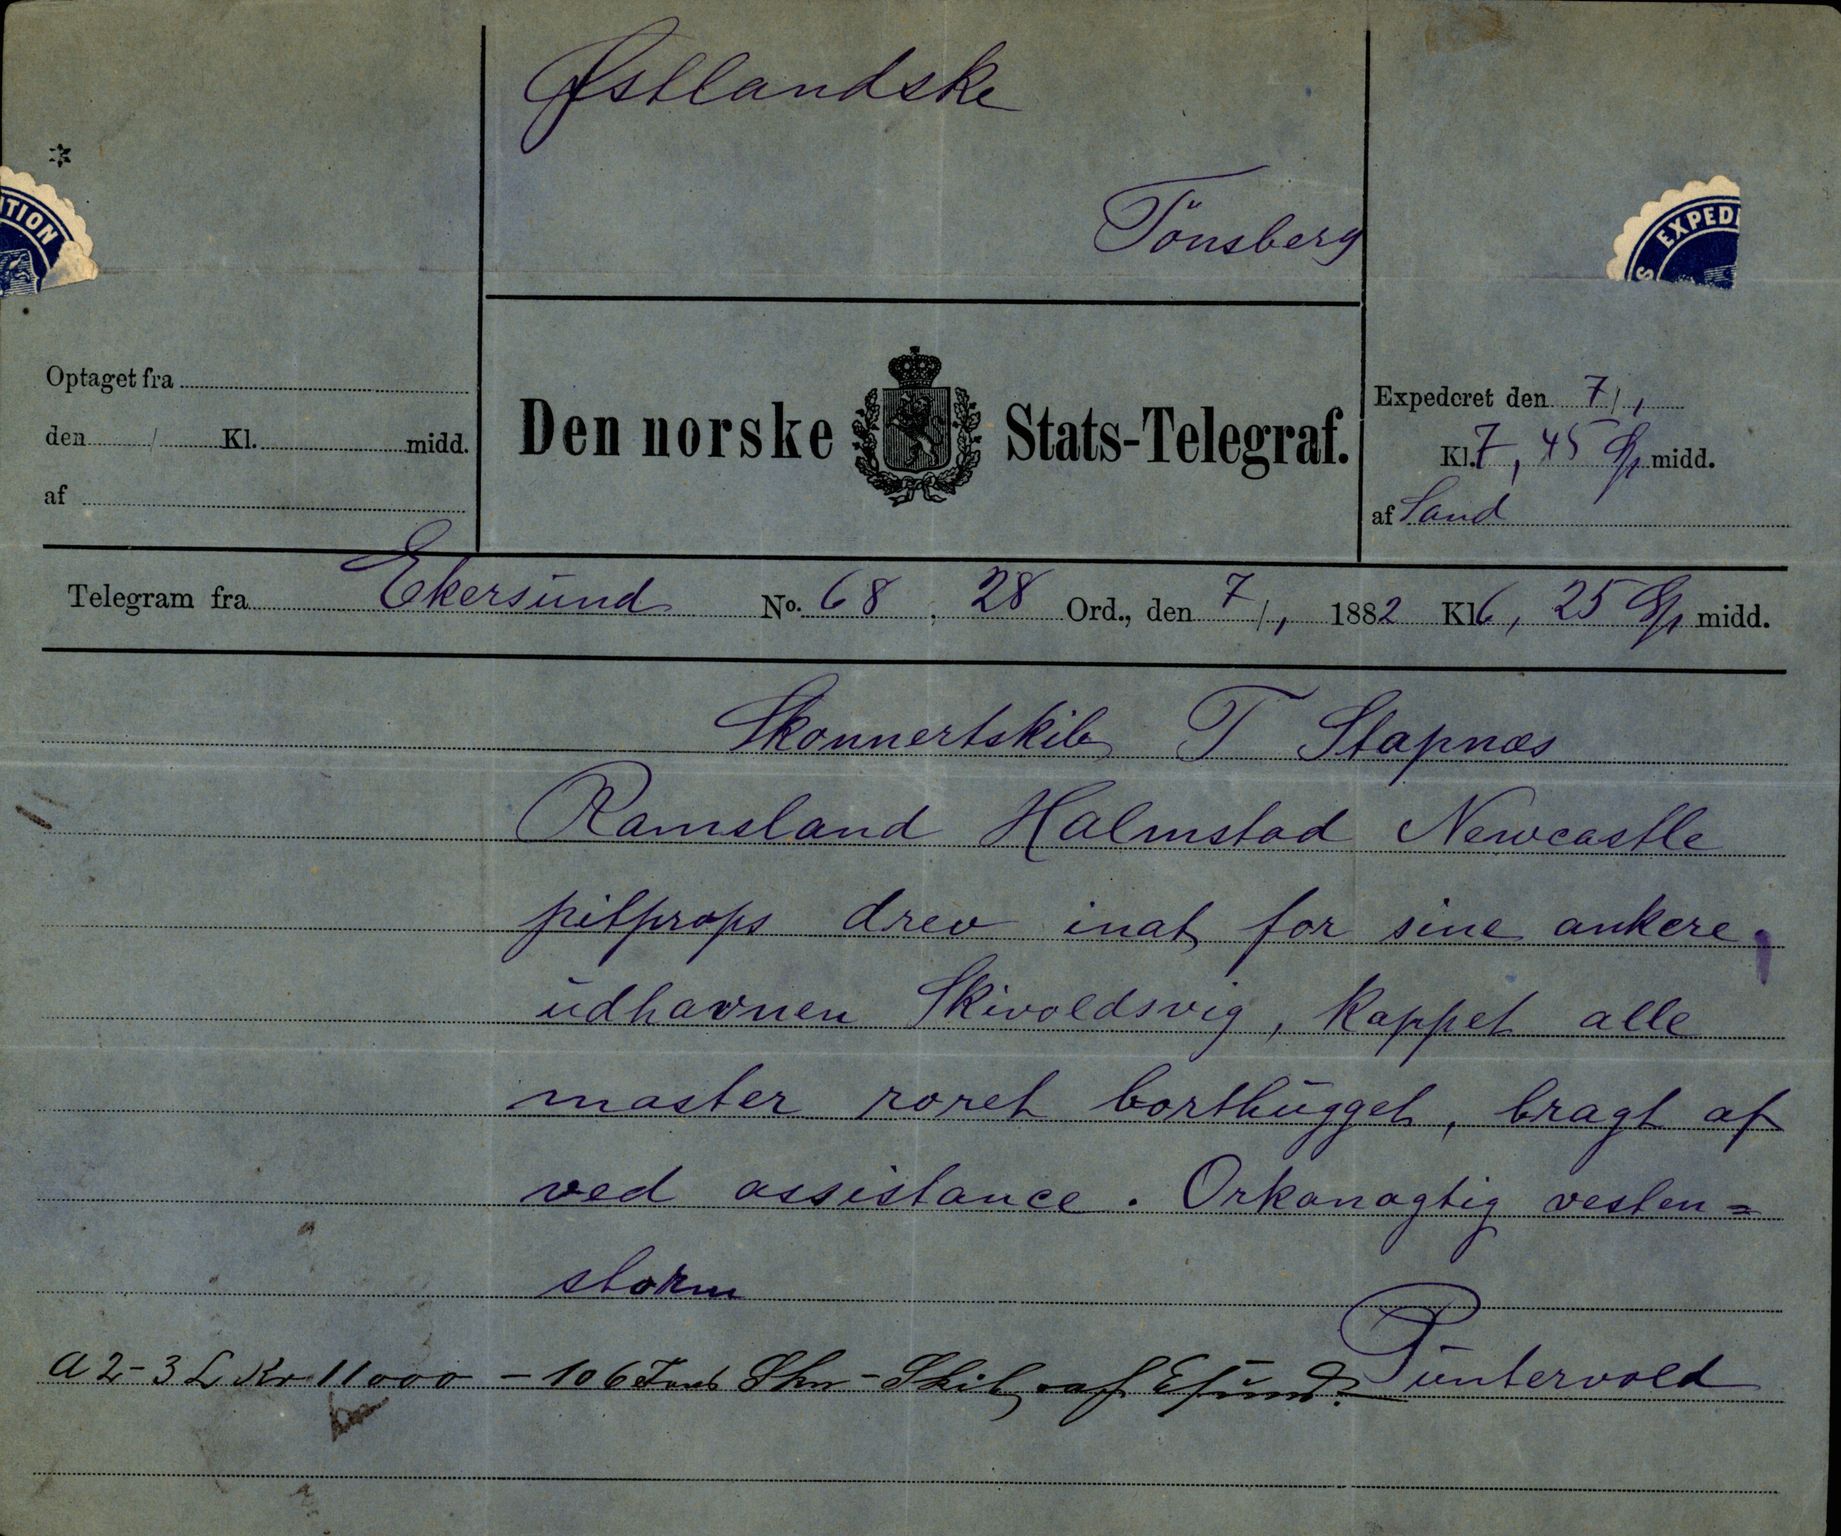 Østlandske
Tönsberg
ITION
EXPEDI
S
Optaget fra
den / Kl. midd.
af
Den norske Stats-Telegraf.
Expederet den 7/1
Kl. 7, 45 Ef midd.
af Sand
Telegram fra Ekersund No. 68, 28 Ord., den 7/1 1882 Kl 6, 25 Ef midd.
Skonnertskib T Stapnæs
Ramsland Halmstad Newcastle
pitprops drev inat for sine ankere,
udhavnen Skivoldsvig, kappet alle
master roret borthugget, bragt af
ved assistance. Orkanagtig vesten=
storm
Puntervold
A 2 - 3 L Kr 11000 - 106 Skr - Skib af Esund.